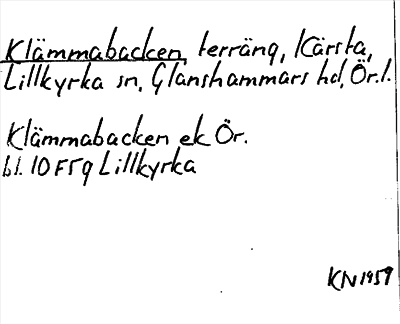 Klämmabacken, terräng, Kärsta,
Lillkyrka sn, Glanshammars hd, Ör.l.
Klämmabacken ek Ör.
bl. 10 F5g Lillkyrka
KN 1959